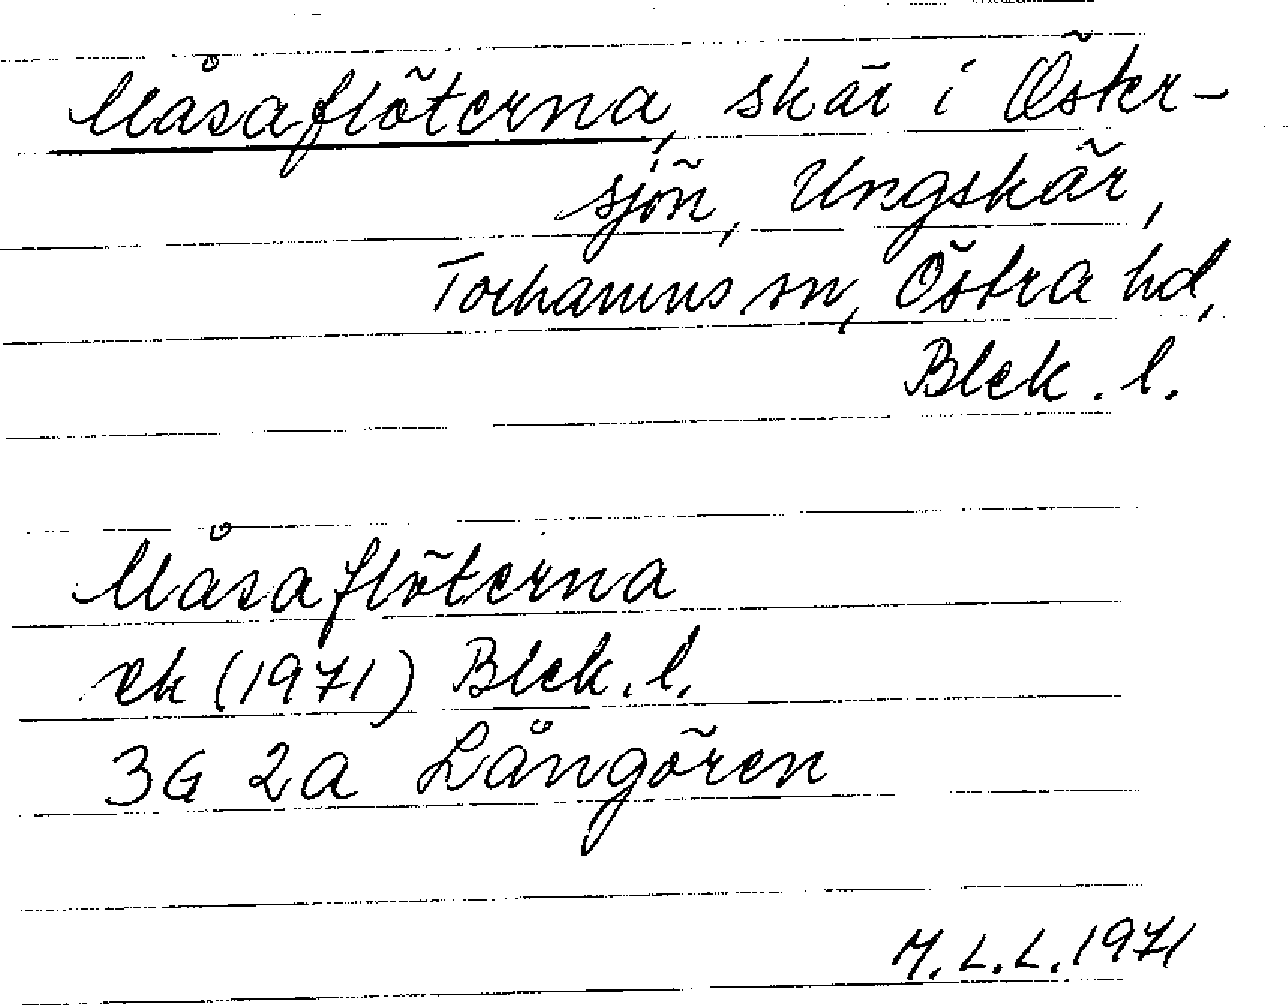 Måsaflöterna, skär i Öster-
sjön, Ungskär,
Torhamns sn, Östra hd,
Blek. l.
Måsaflöterna
ek (1971) Blek. l.
3G 2a Långören
M.L.L. 1971